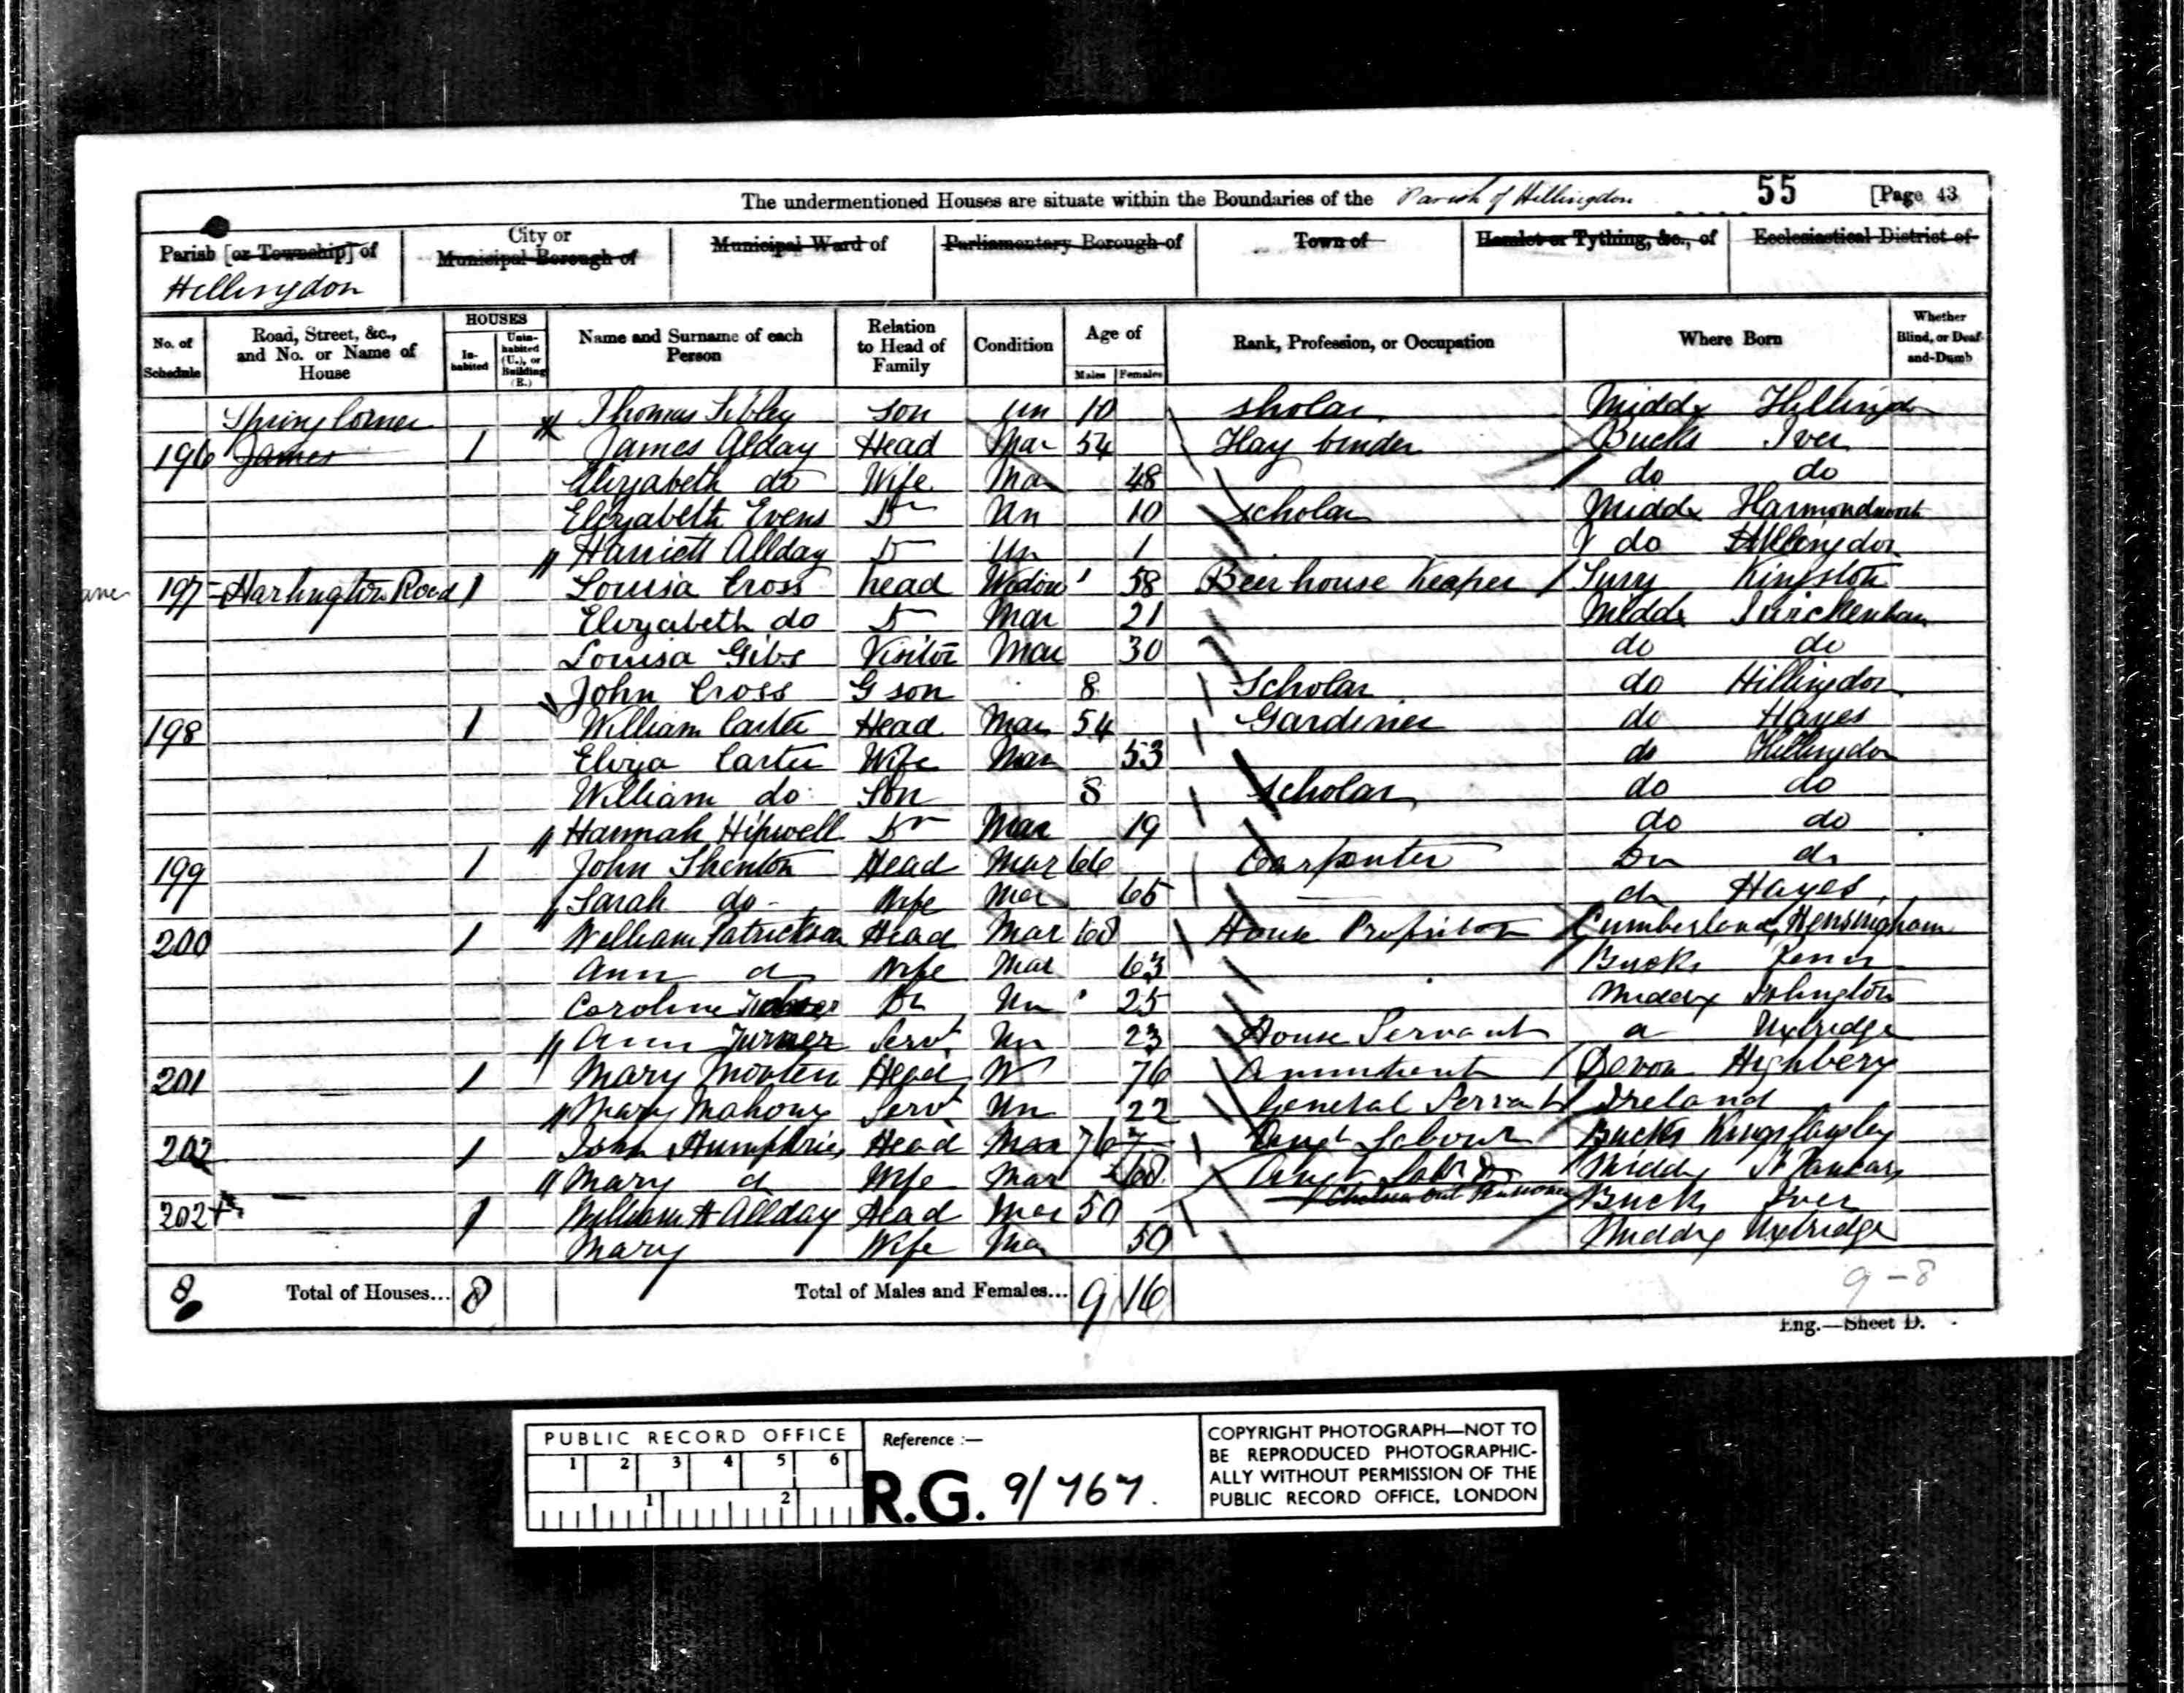 The undermentioned Houses are situate within the Boundaries of the Parish of Hillingdon 55 [Page 43
Parish [or Township] of City or Municipal Borough of Municipal Ward of Parliamentary Borough of Town of Hamlet or Tything, &c., of Ecclesiastical District of
Hillingdon
No. of Schedule Road, Street, &c., and No. or Name of House HOUSES Inhabited Uninhabited (U.), or Building (B.) Name and Surname of each Person Relation to Head of Family Condition Age of Males Females Rank, Profession, or Occupation Where Born Whether Blind, or Deaf-and-Dumb
Spring Corner Thomas Sibley Son Un 10 sholar Middx Hillingdon
196 James 1 James Alday Head Mar 54 Hay binder Bucks Iver
Elizabeth do Wife Mar 48 do do
Elizabeth Evens Un 10 scholar Middx Harmondsworth
Harriett Allday Un 1 do Hillingdon
197 Harlington Road 1 Louisa Cross head Widow 58 Beer house Keeper Surry Kingston
Elizabeth do Mar 21 Middx Twickenham
Louisa Gibs Visitor Mar 30 do do
John Cross G son 8 Scholar do Hillingdon
198 1 William Carter Head Mar 54 Gardiner do Hayes
Eliza Carter Wife Mar 53 do Hillingdon
William do Son 8 scholar do do
Hannah Hipwell Mar 19 do do
199 1 John Shenton Head Mar 66 Carpenter Do do
Sarah do Wife Mar 65 do Hayes
200 1 William Patrickson Head Mar 68 House Proprietor Cumberland Hensingham
Ann do Wife Mar 63 Bucks
Caroline Dr Un 25 Middx Islington
Ann Turner Servt Un 23 House Servant Uxbridge
201 1 Mary Morten Head W 76 Annuitent Devon Highbery
Mary Mahony Servt Un 22 General Servant Ireland
202 1 John Humphries Head Mar 76 Labour Bucks Kings Langley
Mary d Wife Mar 68 Middx St Pancras
Chelsea out Pensioner
202 1 William H Allday Head Mar 50 Bucks Iver
Mary Wife Mar 50 Middx Uxbridge
8 Total of Houses... 8 Total of Males and Females... 9 16
9-8
Eng.—Sheet D.
PUBLIC RECORD OFFICE
1 2 3 4 5 6
1 2
Reference :—
R.G. 9/767.
COPYRIGHT PHOTOGRAPH—NOT TO
BE REPRODUCED PHOTOGRAPHIC-
ALLY WITHOUT PERMISSION OF THE
PUBLIC RECORD OFFICE, LONDON